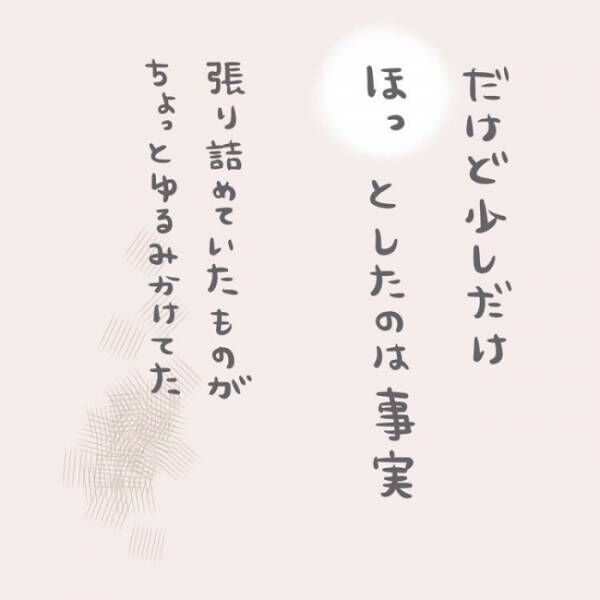 だけど少しだけ
ほっとしたのは事実
張り詰めていたものが
ちょっとゆるみかけてた